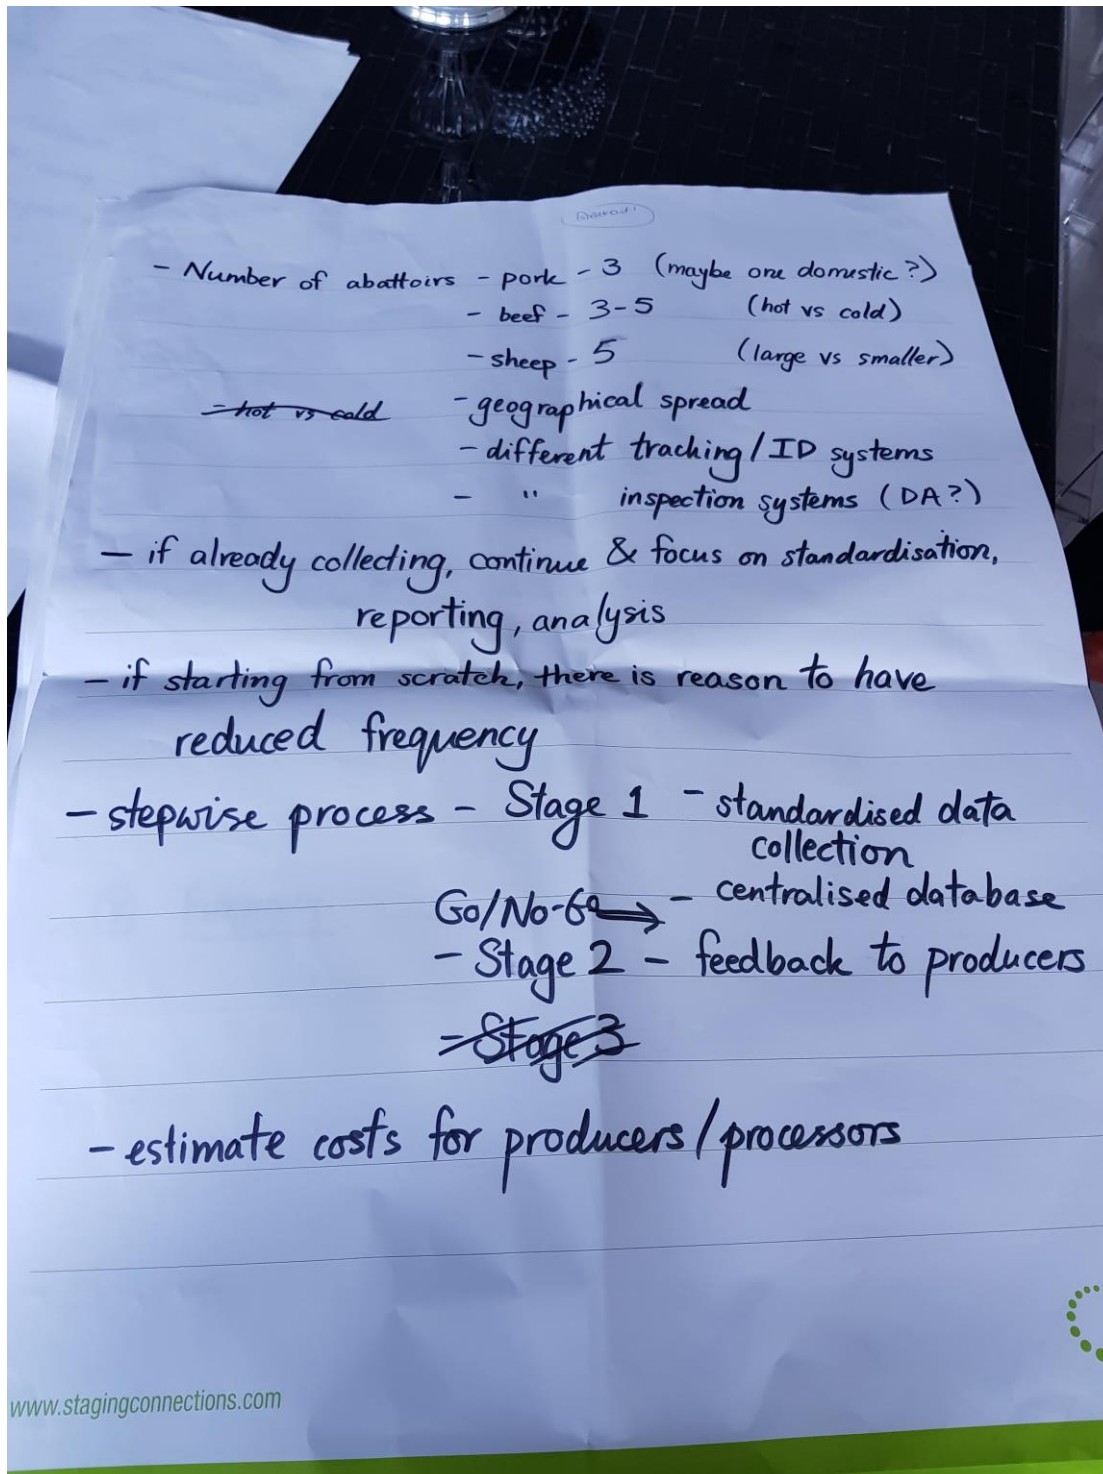 - Number of abattoirs - pork - 3 (maybe one domestic?)
- beef - 3-5 (hot vs cold)
- sheep - 5 (large vs smaller)
- hot vs cold - geographical spread
- different tracking/ID systems
- " inspection systems (DA?)
- if already collecting, continue & focus on standardisation,
reporting, analysis
- if starting from scratch, there is reason to have
reduced frequency
- stepwise process - Stage 1 - standardised data
collection
Go/No-Go → - centralised database
- Stage 2 - feedback to producers
- Stage 3
- estimate costs for producers/processors
www.stagingconnections.com